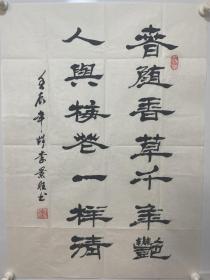 春随香草千年艷
人與梅花一樣清
壬辰年
書